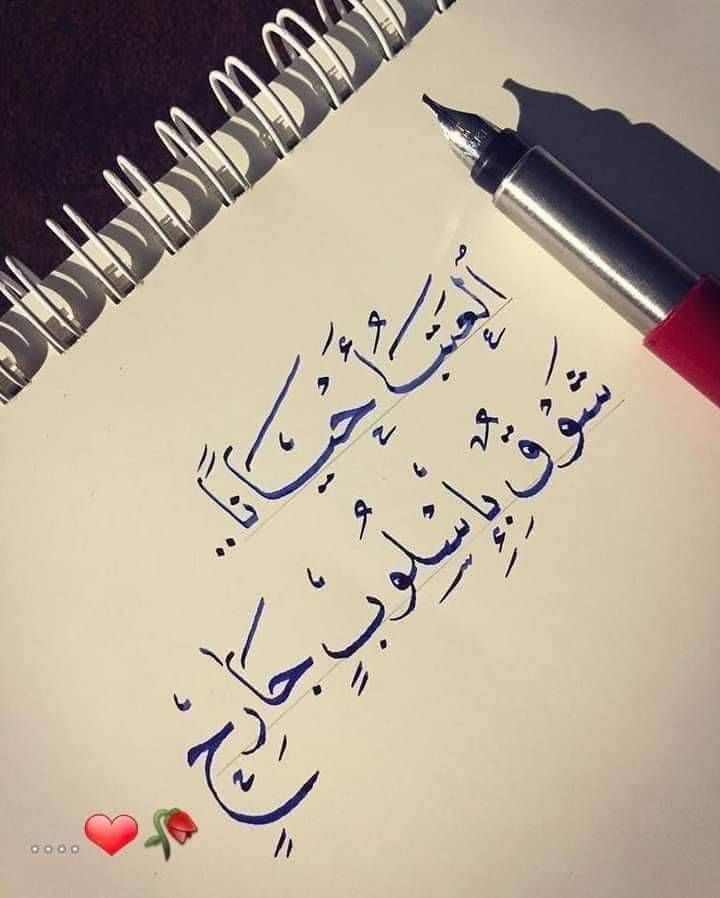 اُلعِتَبُ أَحْيَاناً ..
شَوْقٌ بِإِسْلُوبٍ جَارِحٍ
....❤🥀